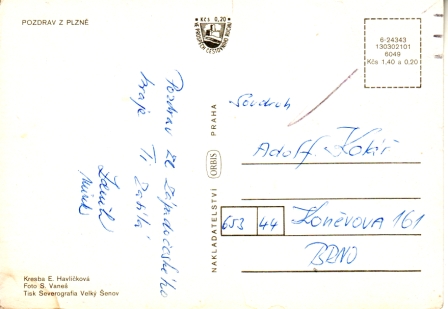 POZDRAV Z PLZNĚ
Kčs 0,20
VE PROSPĚCH CESTOVNÍHO RUCHU
6-24343
130302101
6049
Kčs 1,40 a 0,20
Pozdrav ze západočeského
kraje Ti zasílá
NAKLADATELSTVÍ ORBIS PRAHA
Soudruh
Adolf
653 44 Koněvova 161
BRNO
Kresba E. Havlíčková
Foto S. Vaneš
Tisk Severografia Velký Šenov